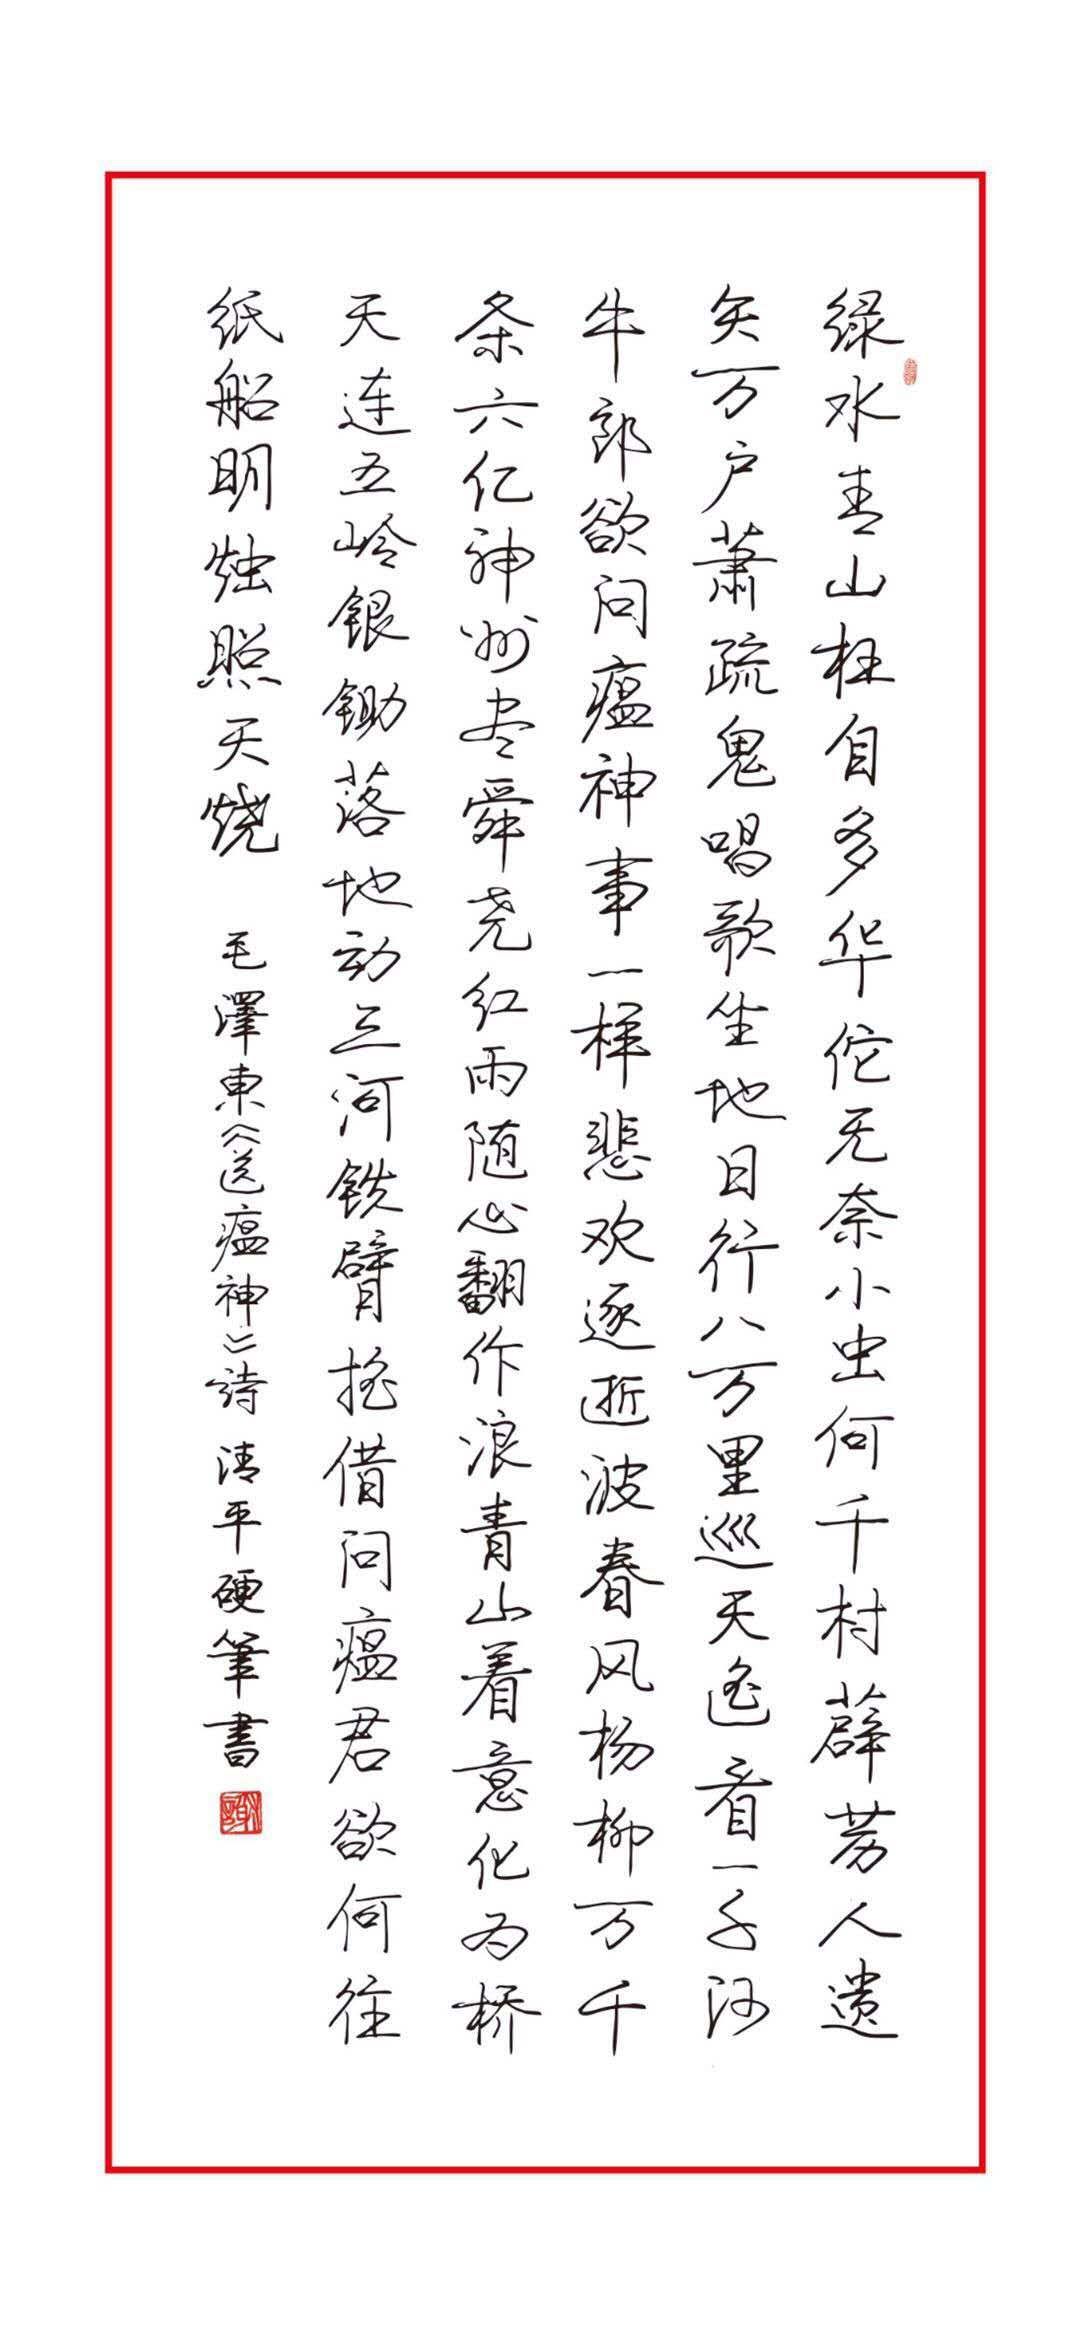 绿水青山枉自多华佗无奈小虫何千村薜荔人遗
矢万户萧疏鬼唱歌坐地日行八万里巡天遥看一千河
牛郎欲问瘟神事一样悲欢逐逝波春风杨柳万千
条六亿神州尽舜尧红雨随心翻作浪青山着意化为桥
天连五岭银锄落地动三河铁臂摇借问瘟君欲何往
纸船明烛照天烧 毛澤東《送瘟神》詩 清平硬筆書